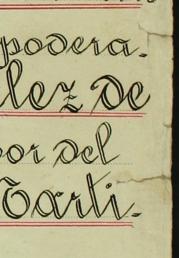 podera-
lez de
or del
Tarti-